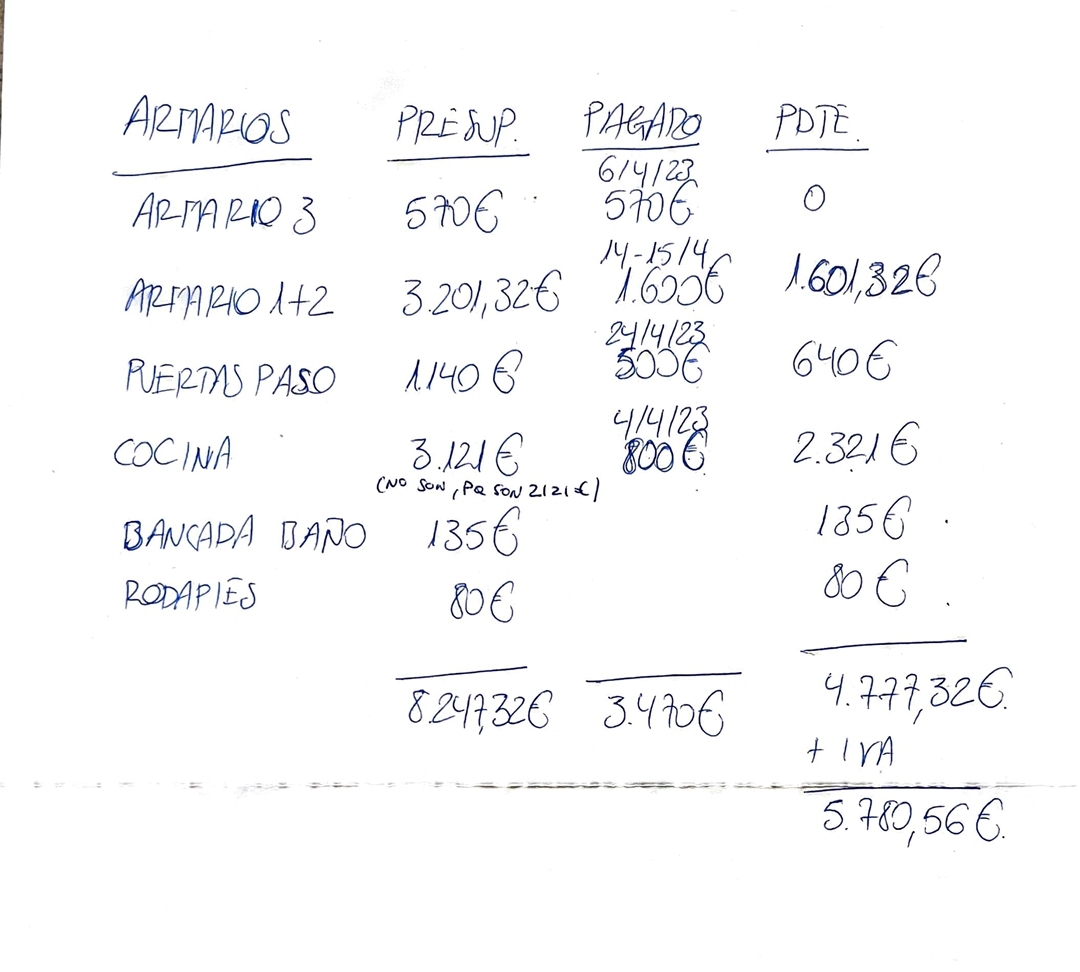 ARMARIOS PRESUP. PAGADO PDTE.
6/4/23
ARMARIO 3 570€ 570€ 0
14-15/4
ARMARIO 1+2 3.201,32€ 1.600€ 1.601,32€
24/4/23
PUERTAS PASO 1.140€ 500€ 640€
4/4/23
COCINA 3.121€ 800€ 2.321€
(NO SON, PQ SON 2121€)
BANCADA BAÑO 135€ 135€
RODAPIES 80€ 80€
8.247,32€ 3.470€ 4.777,32€.
+ IVA
5.780,56€.